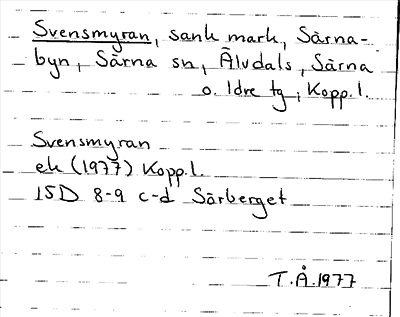 Svensmyran, sank mark, Särna-
byn, Särna sn, Älvdals, Särna
o. Idre tg, Kopp. l.
Svensmyran
ek (1977) Kopp. l.
15D 8-9 c-d Särberget
T.Å. 1977